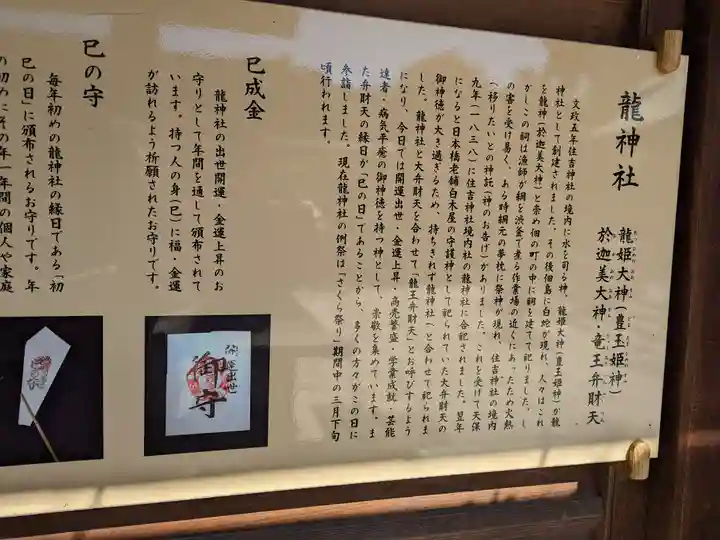 龍神社
龍姫大神(豊玉姫神)
於迦美大神・竜王弁財天
文政五年住吉神社の境内に水を司る神、龍姫大神(豊玉姫神)が龍
神社として創建されました。その後佃島に白蛇が現れ、人々はこれ
を龍神(於迦美大神)と崇め佃の町の中に祠を建て祀りました。し
かしこの祠は漁師が網を渋釜で煮る作業場の近くにあったため火熱
の害を受け易く、ある時網元の夢枕に祭神が現れ、住吉神社の境内
へ移りたいとの神託(神のお告げ)がありました。これを受けて天保
九年(一八三八)に住吉神社境内社の龍神社に合祀されました。翌年
になると日本橋老舗白木屋の守護神として祀られていた大弁財天の
御神徳が大き過ぎるため、持ちきれず龍神社へと合わせて祀られま
した。龍神社と大弁財天を合わせて「龍王弁財天」とお呼びするよう
になり、今日では開運出世・金運上昇・商売繁盛・学業成就・芸能
達者・病気平癒の御神徳を持つ神として、崇敬を集めています。ま
た弁財天の縁日が「巳の日」であることから、多くの方々がこの日に
参詣しました。現在龍神社の例祭は「さくら祭り」期間中の三月下旬
頃行われます。
巳成金
龍神社の出世開運・金運上昇のお
守りとして年間を通して頒布されて
います。持つ人の身(巳)に福・金運
が訪れるよう祈願されたお守りです。
開運出世
御守
巳の守
毎年初めの龍神社の縁日である「初
巳の日」に頒布されるお守りです。年
の初めにその年一年間の個人や家庭